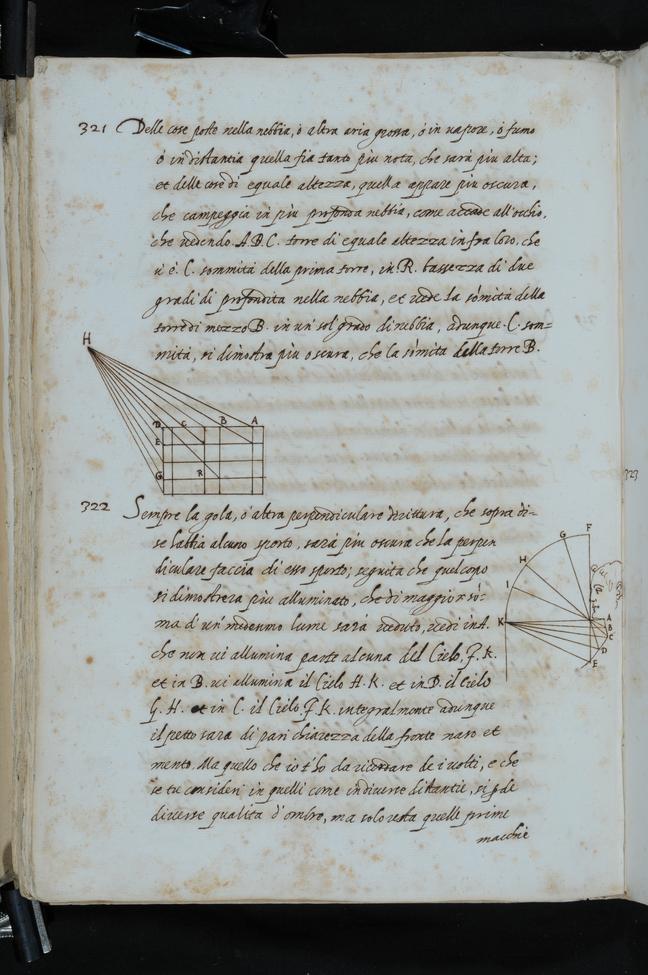 321 Delle cose poste nella nebbia, ò altra aria grossa, ò in uapore, ò fumo
ò in distantia quella fia tanto piu nota, che sarà piu alta;
et delle cose di equale altezza, quella appare piu oscura,
che campeggia in piu profonda nebbia, come accade all'occhio,
che uedendo A.B.C. torre di equale altezza infra loro, che
ui è C. sommità della prima torre, in R. bassezza di due
gradi di profondità nella nebbia, et uede la somità della
torre di mezzo B. in un' sol grado di nebbia, adunque C. som=
mità, si dimostra piu oscura, che la somità della torre B.
H
D C B A
E
G R
322 Sempre la gola, ò altra perpendiculare dirittura, che sopra di=
se habbia alcuno sporto, sarà piu oscura che la perpen
diculare faccia di esso sporto; seguita che quel corpo
si dimostrera piu alluminato, che di maggior sò:
ma d'un' medesimo lume sarà ueduto, uedi in A.
che non ui allumina parte alcuna del Cielo, F. K.
et in B. ui allumina il Cielo H. K. et in D. il cielo
G. H. et in C. il Cielo F. K. integralmente adunque
il petto sara di pari chiarezza della fronte naso et
mento. Ma quello che io t'ho da ricordare de i uolti, e che
se tu consideri in quelli come in diuerse distantie, si pde
diuerse qualità d'ombre, ma solo resta quelle prime
macchie
F
G
H
I
K
A
B
C
D
E
323